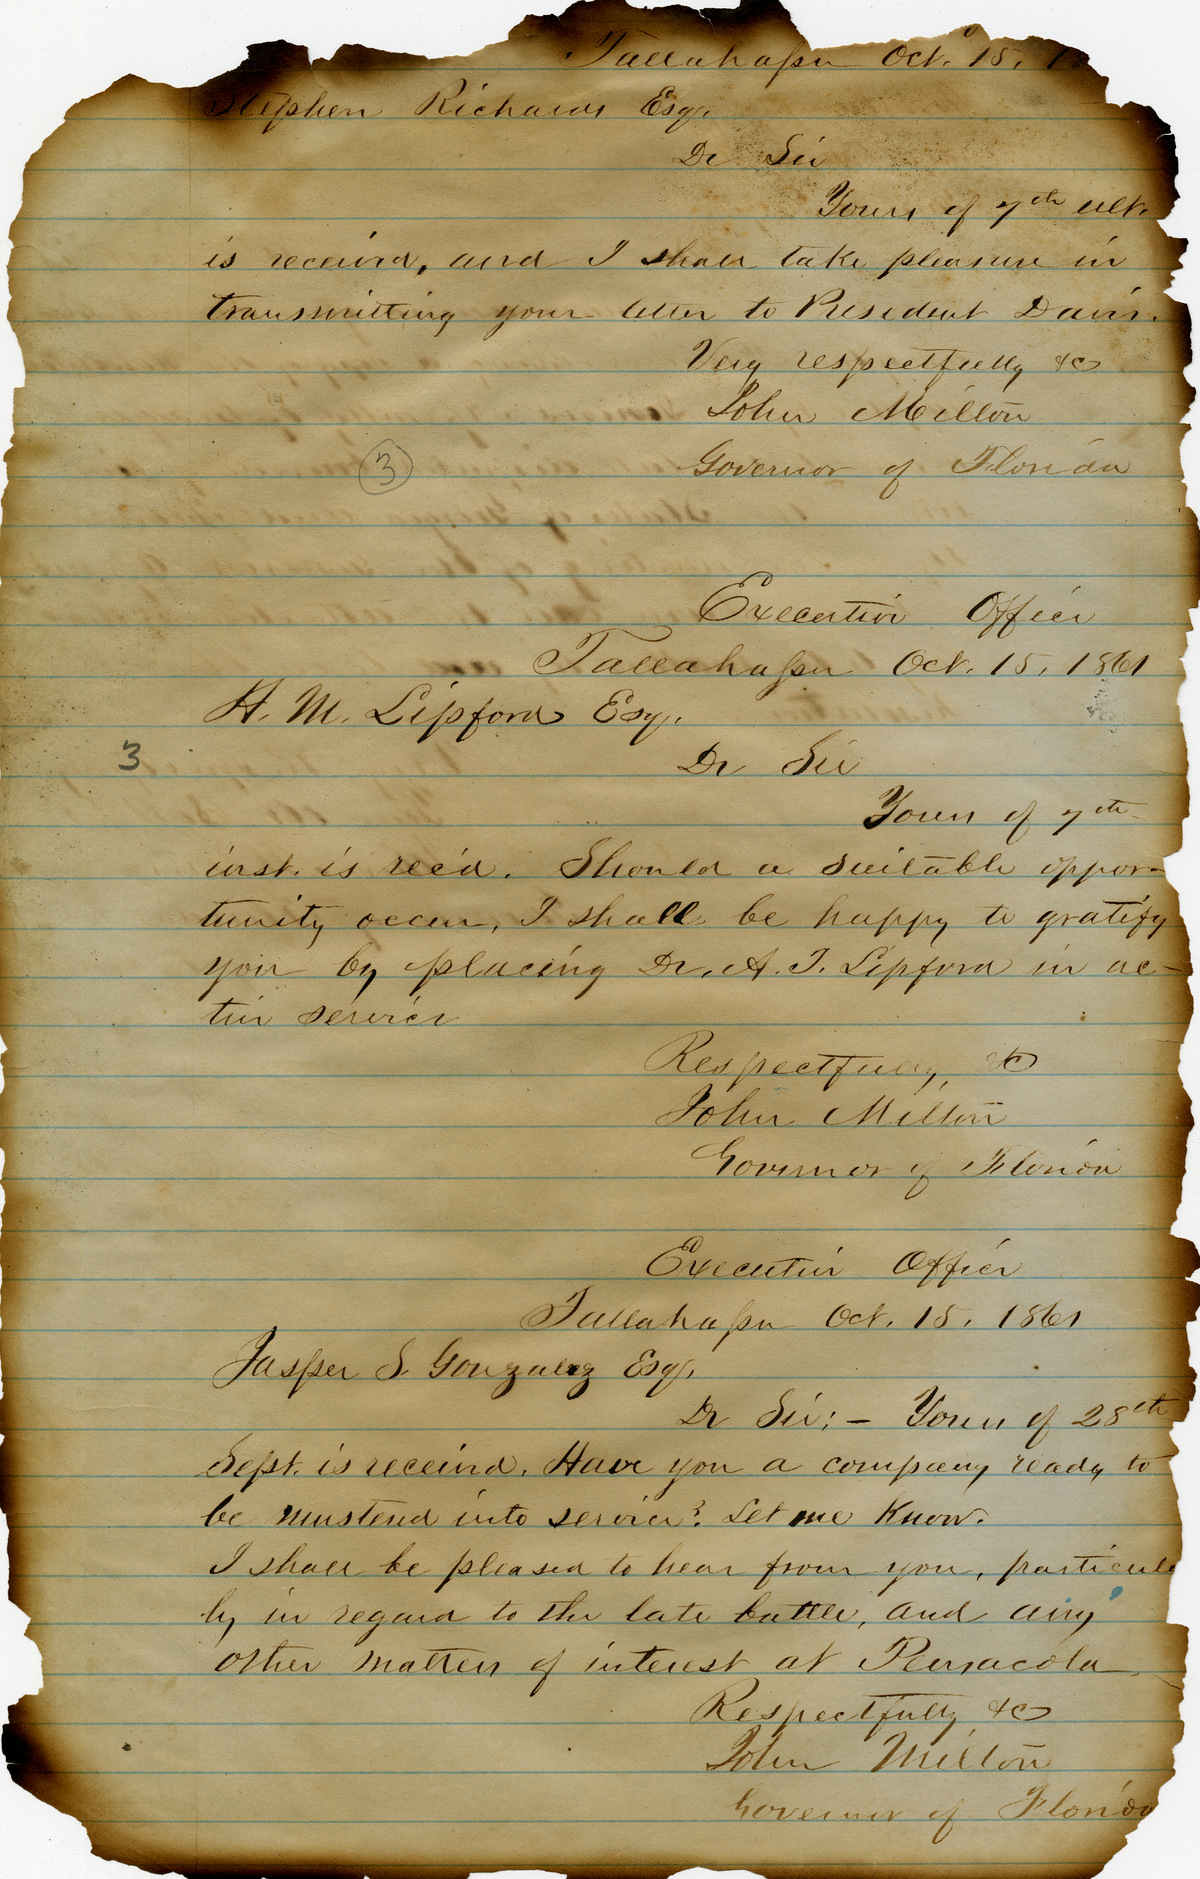 Tallahassee Oct. 15, 1
Stephen Richards Esq.
Dr Sir
Yours of 7th ult.
is received, and I shall take pleasure in
transmitting your letter to President Davis.
Very respectfully &c
John Milton
Governor of Florida
3
Executive Office
Tallahassee Oct. 15, 1861
H. M. Lipford Esq.
3
Dr Sir
Yours of 7th
inst. is rec'd. Should a suitable oppor-
tunity occur, I shall be happy to gratify
you by placing Dr. A. J. Lipford in ac-
tive service
Respectfully, &c
John Milton
Governor of Florida
Executive Office
Tallahassee Oct. 15, 1861
Jasper S. Gonzalez Esq.
Dr Sir:— Yours of 28th
Sept. is received. Have you a company ready to
be mustered into service? Let me know.
I shall be pleased to hear from you, particul
ly in regard to the late battle, and any
other matters of interest at Pensacola
Respectfully &c
John Milton
Governor of Florida